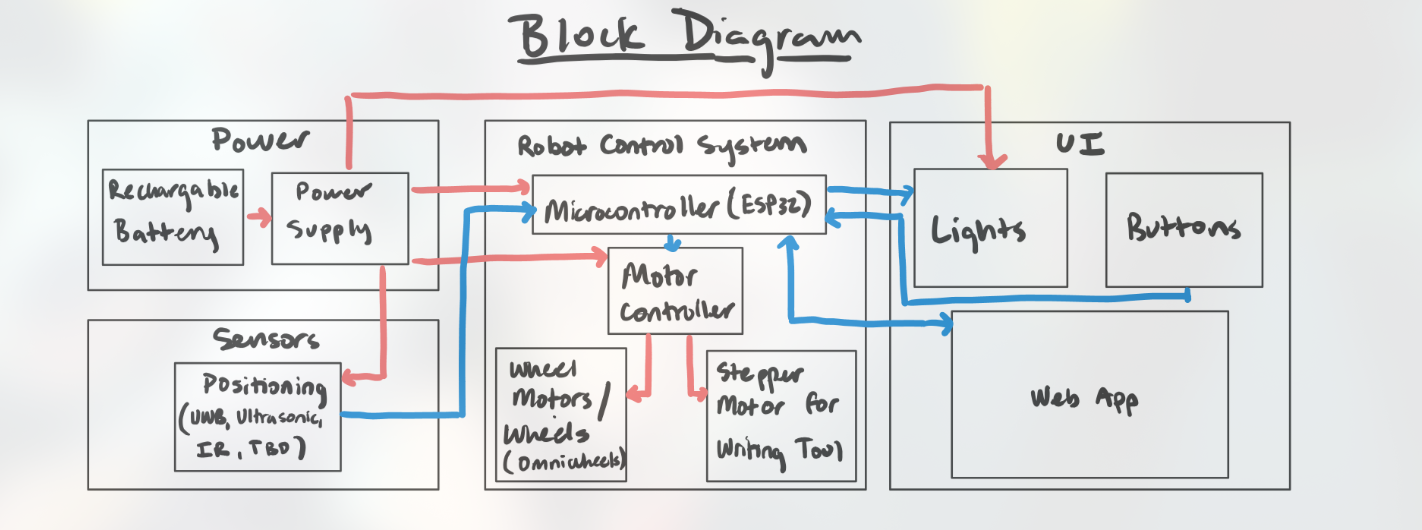 Block Diagram
Power
Rechargable
Battery
Power
Supply
Sensors
Positioning
(UWB, Ultrasonic,
IR, TBD)
Robot Control System
Microcontroller (ESP32)
Motor
Controller
Wheel
Motors/
Wheels
(Omniwheels)
Stepper
Motor for
Writing Tool
UI
Lights
Buttons
Web App